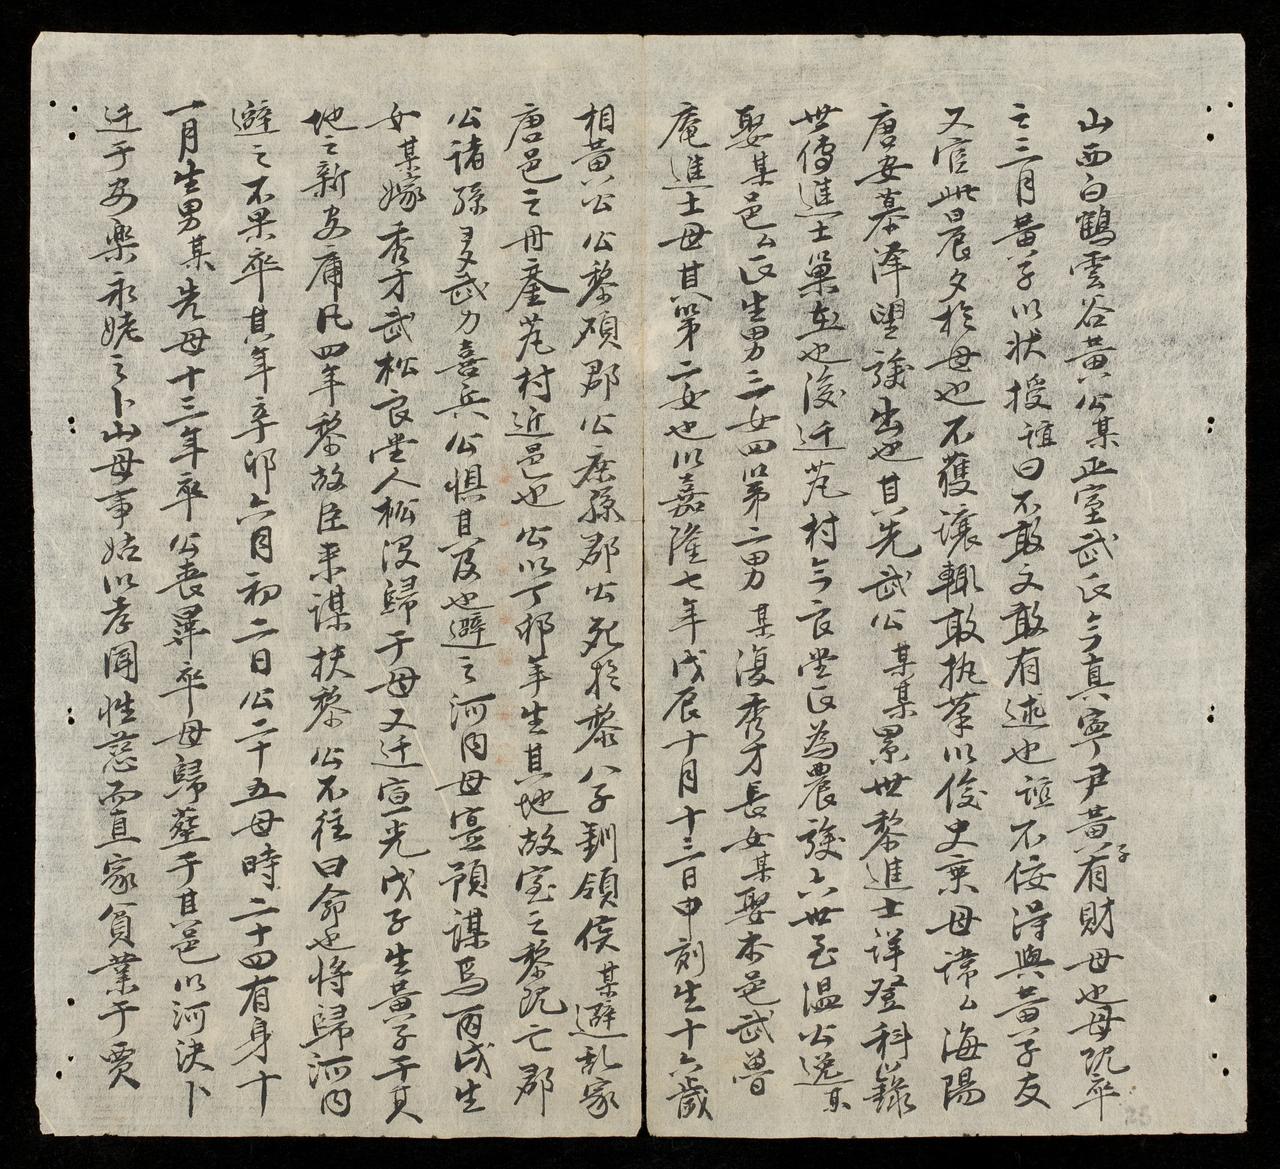 山西白鶴雲谷黃公某正室武氏今真寧尹黃子有財母也母既卒
之三月黃子以狀授誼曰不敢文敢有述也誼不佞得與黃子友
又官此晨夕於母也不獲讓輒敢執筆以俟史乘母諱么海陽
唐安慕澤望族出也其先武公某某累世黎進士詳登科錄
世傳進士巢在也後迁芃村今良堂臣為農族六世至温公逸某
娶某邑么臣生男三女四以第二男某復秀才長女某娶本邑武曾
庵進士母其第二女也以嘉隆七年戊辰十月十三日申刻生十六歲
相黃公公黎碩郡公庶孫郡公死於黎公子釧領侯某避乱家
唐邑之母奎芃村近邑也公以丁卯年生其地故室之黎既亡郡
公諸孫多武力喜兵公惧其及也避之河內母寔預謀焉丙戌生
女某嫁秀才武松良堂人松沒歸于母又迁宣光戊子生黃子于其
地之新安庸凡四年黎故臣来謀扶黎公不往曰命也將歸河內
避之不果卒其年辛卯六月初二日公二十五母時二十四有身十
一月生男某先母十三年卒公喪畢卒母歸葬于其邑以河決卜
迁于安樂永姥之卜山母事姑以孝聞性慈而直家貧業于賈